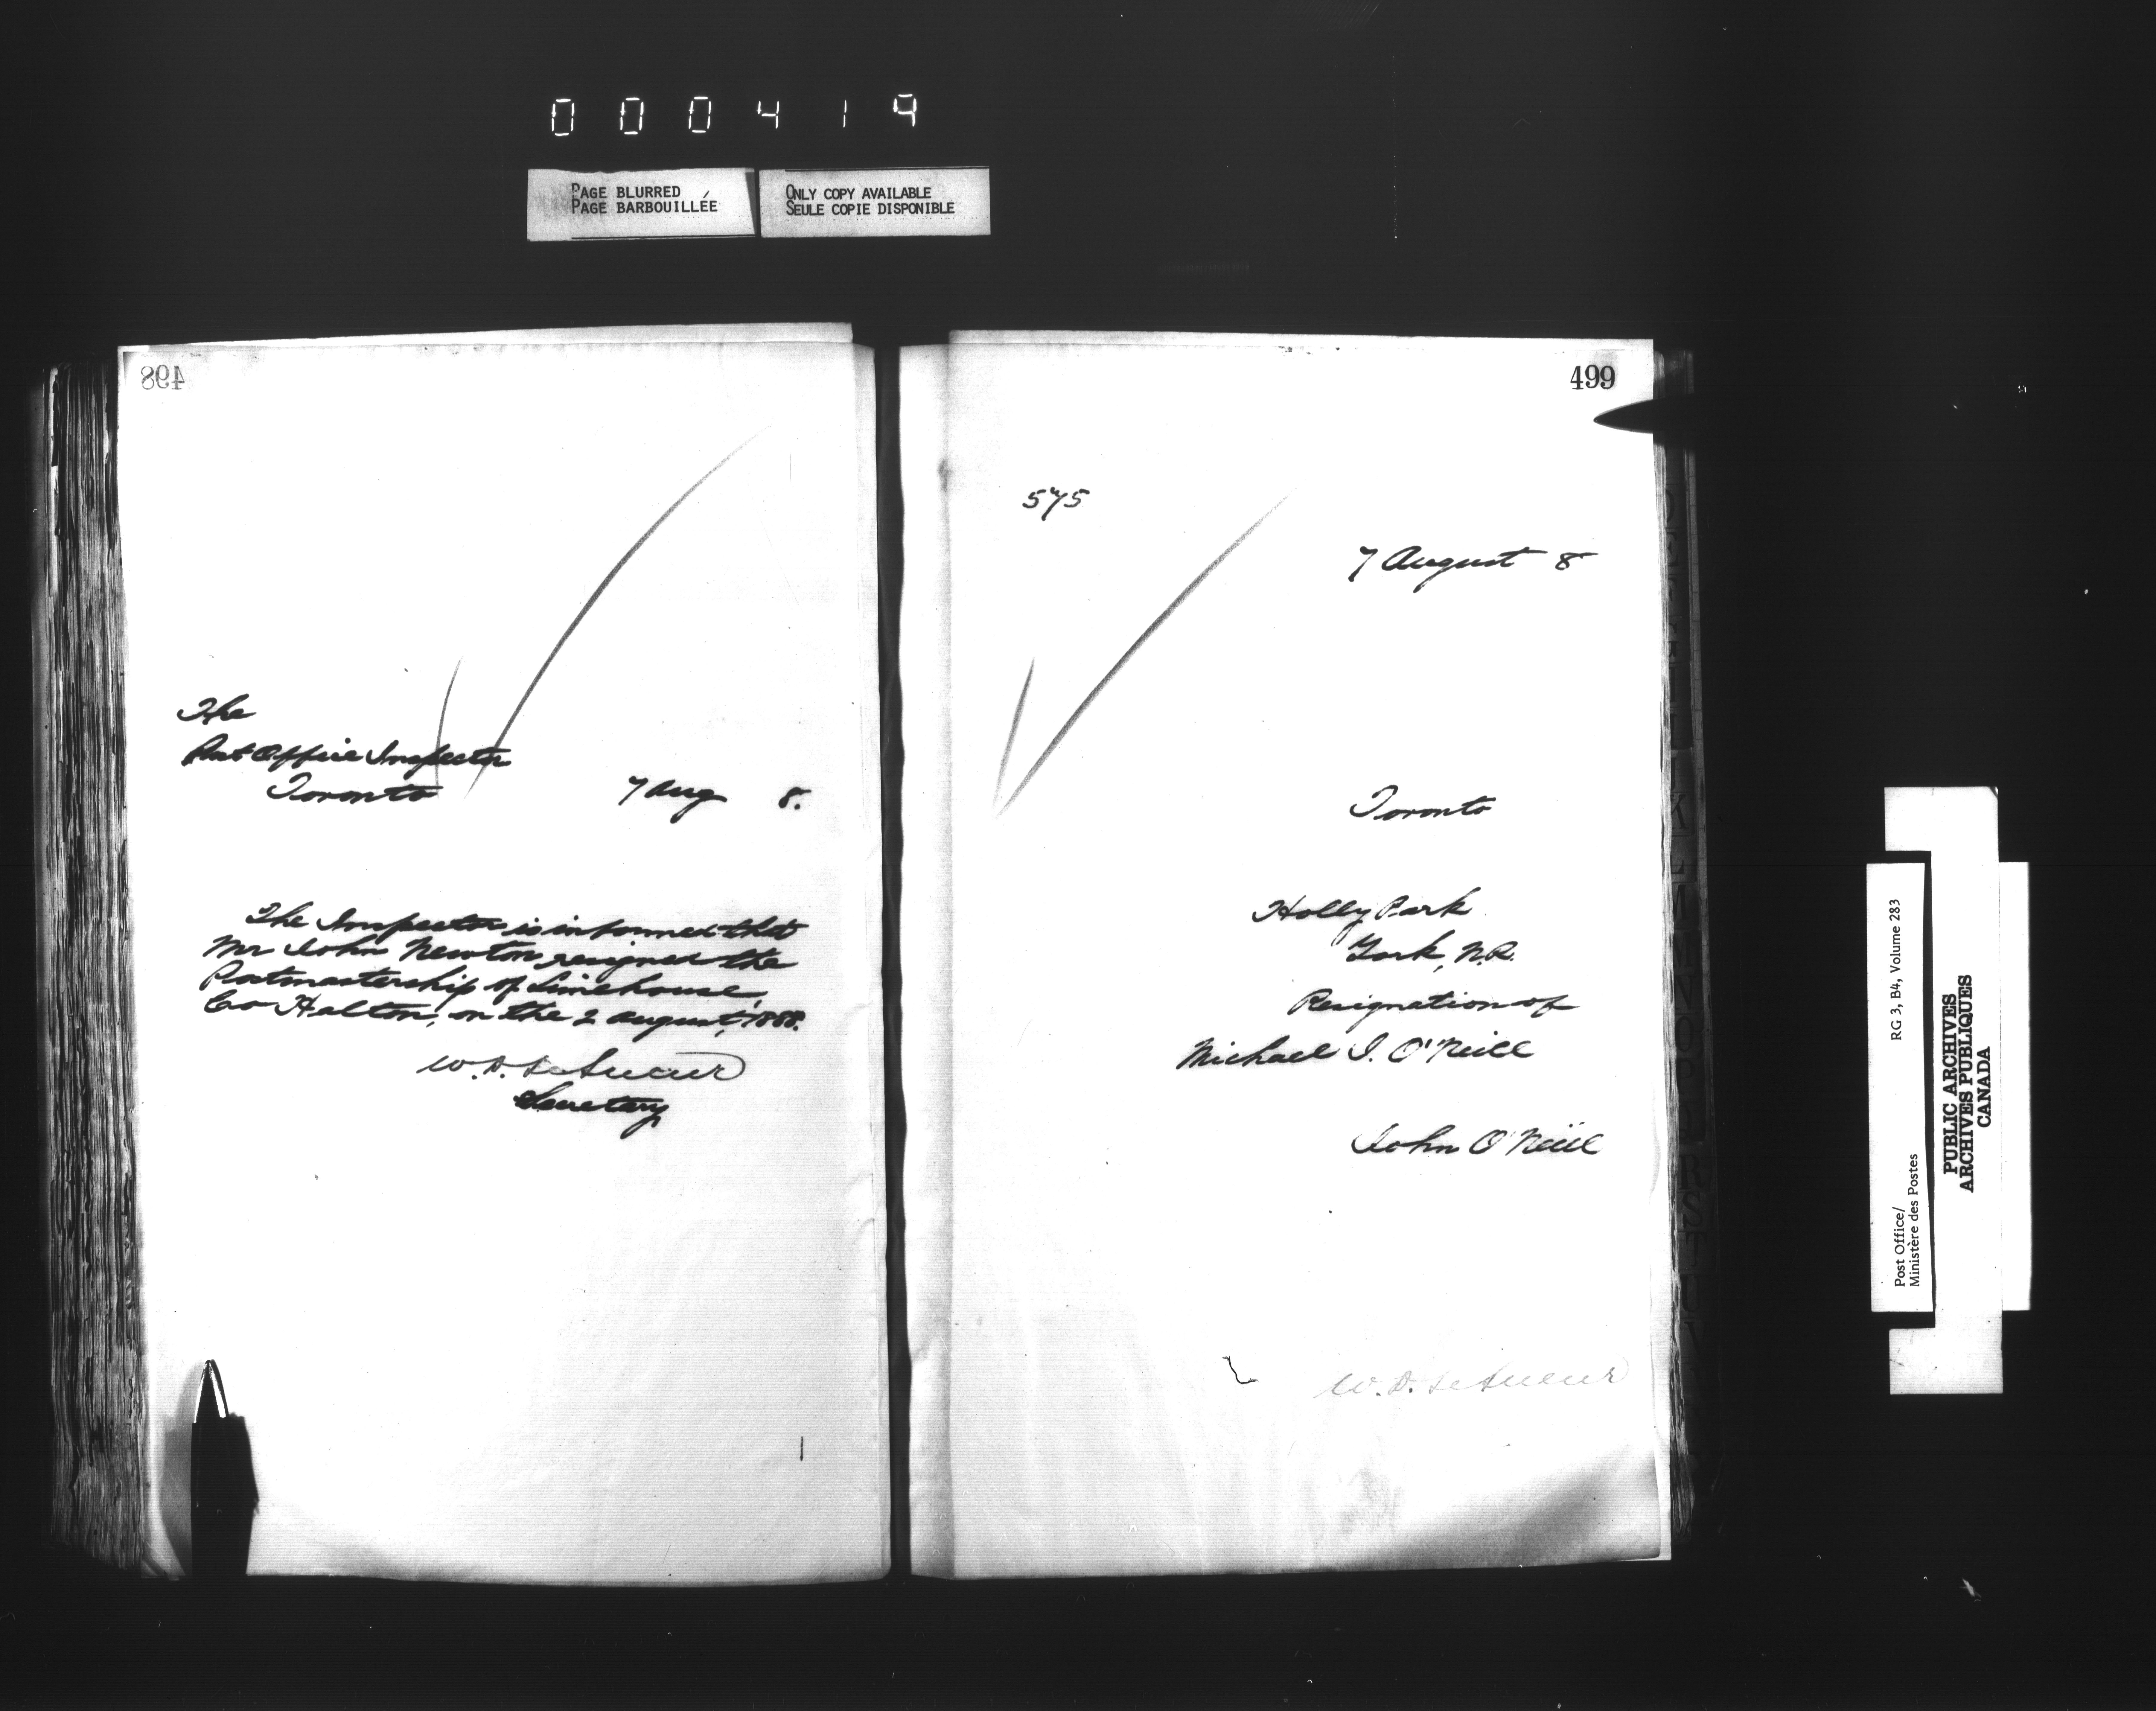 000419
PAGE BLURRED
PAGE BARBOUILLÉE
ONLY COPY AVAILABLE
SEULE COPIE DISPONIBLE
498
The
Post Office Inspector
Toronto
7 Aug 8.
The Inspector is informed that
Mr John Newton resigned the
Postmastership of Limehouse,
Co Halton, on the 2 August, 1888.
W. D. LeSueur
Secretary
499
575
7 August 8
Toronto
Holly Park
York, N.R.
Resignation of
Michael J. O'Neill
John O'Neill
W. D. LeSueur
Post Office/
Ministère des Postes
RG 3, B4, Volume 283
PUBLIC ARCHIVES
ARCHIVES PUBLIQUES
CANADA